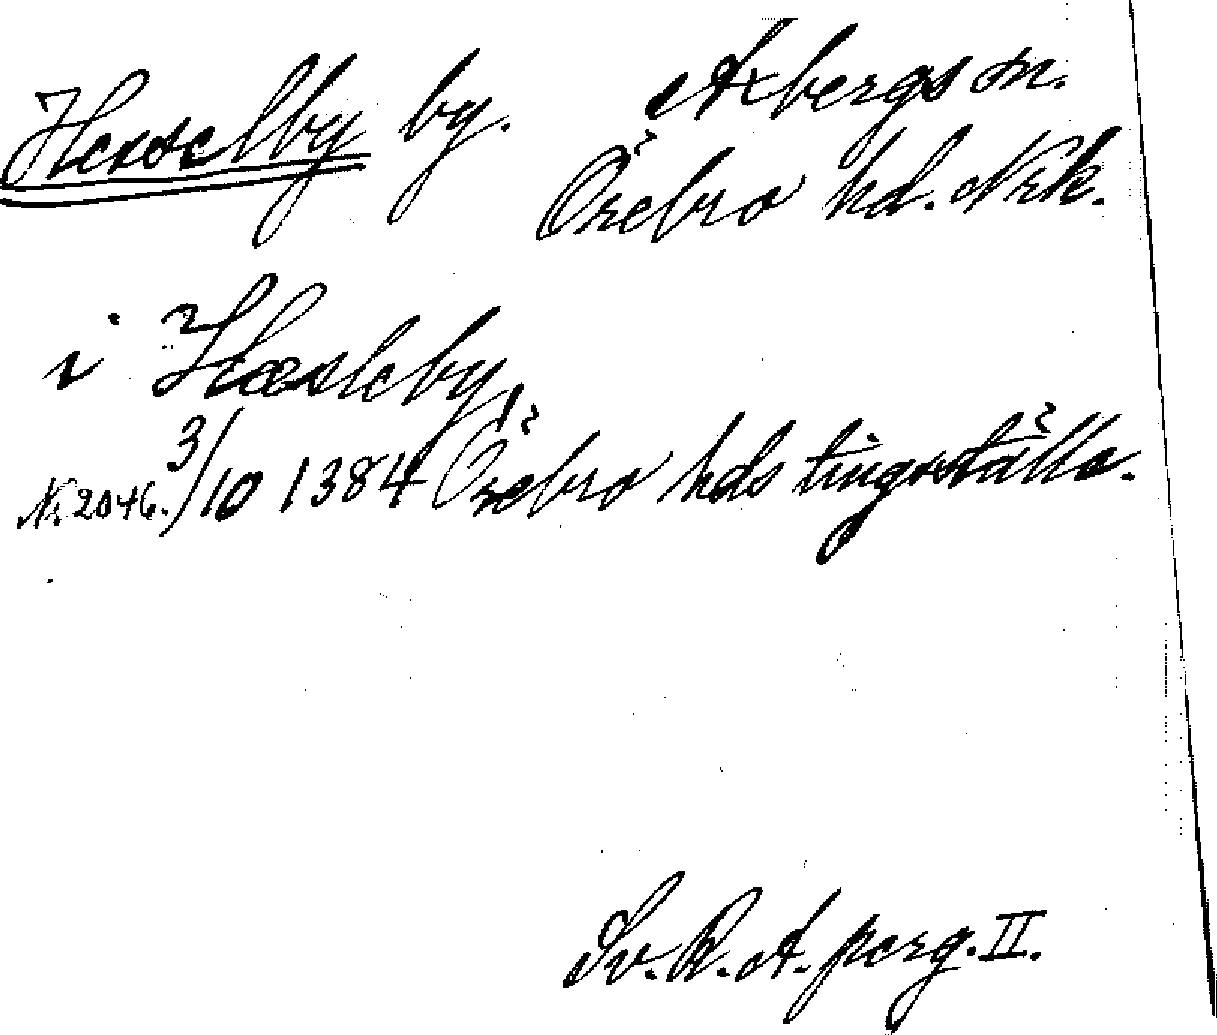 Hesselby by. Axbergs sn.
Örebro hd. Nrk.
i Hæsleby,
Nr. 2046. 3/10 1384 Örebro hds tingställe.
Sv. R. A. perg. II.